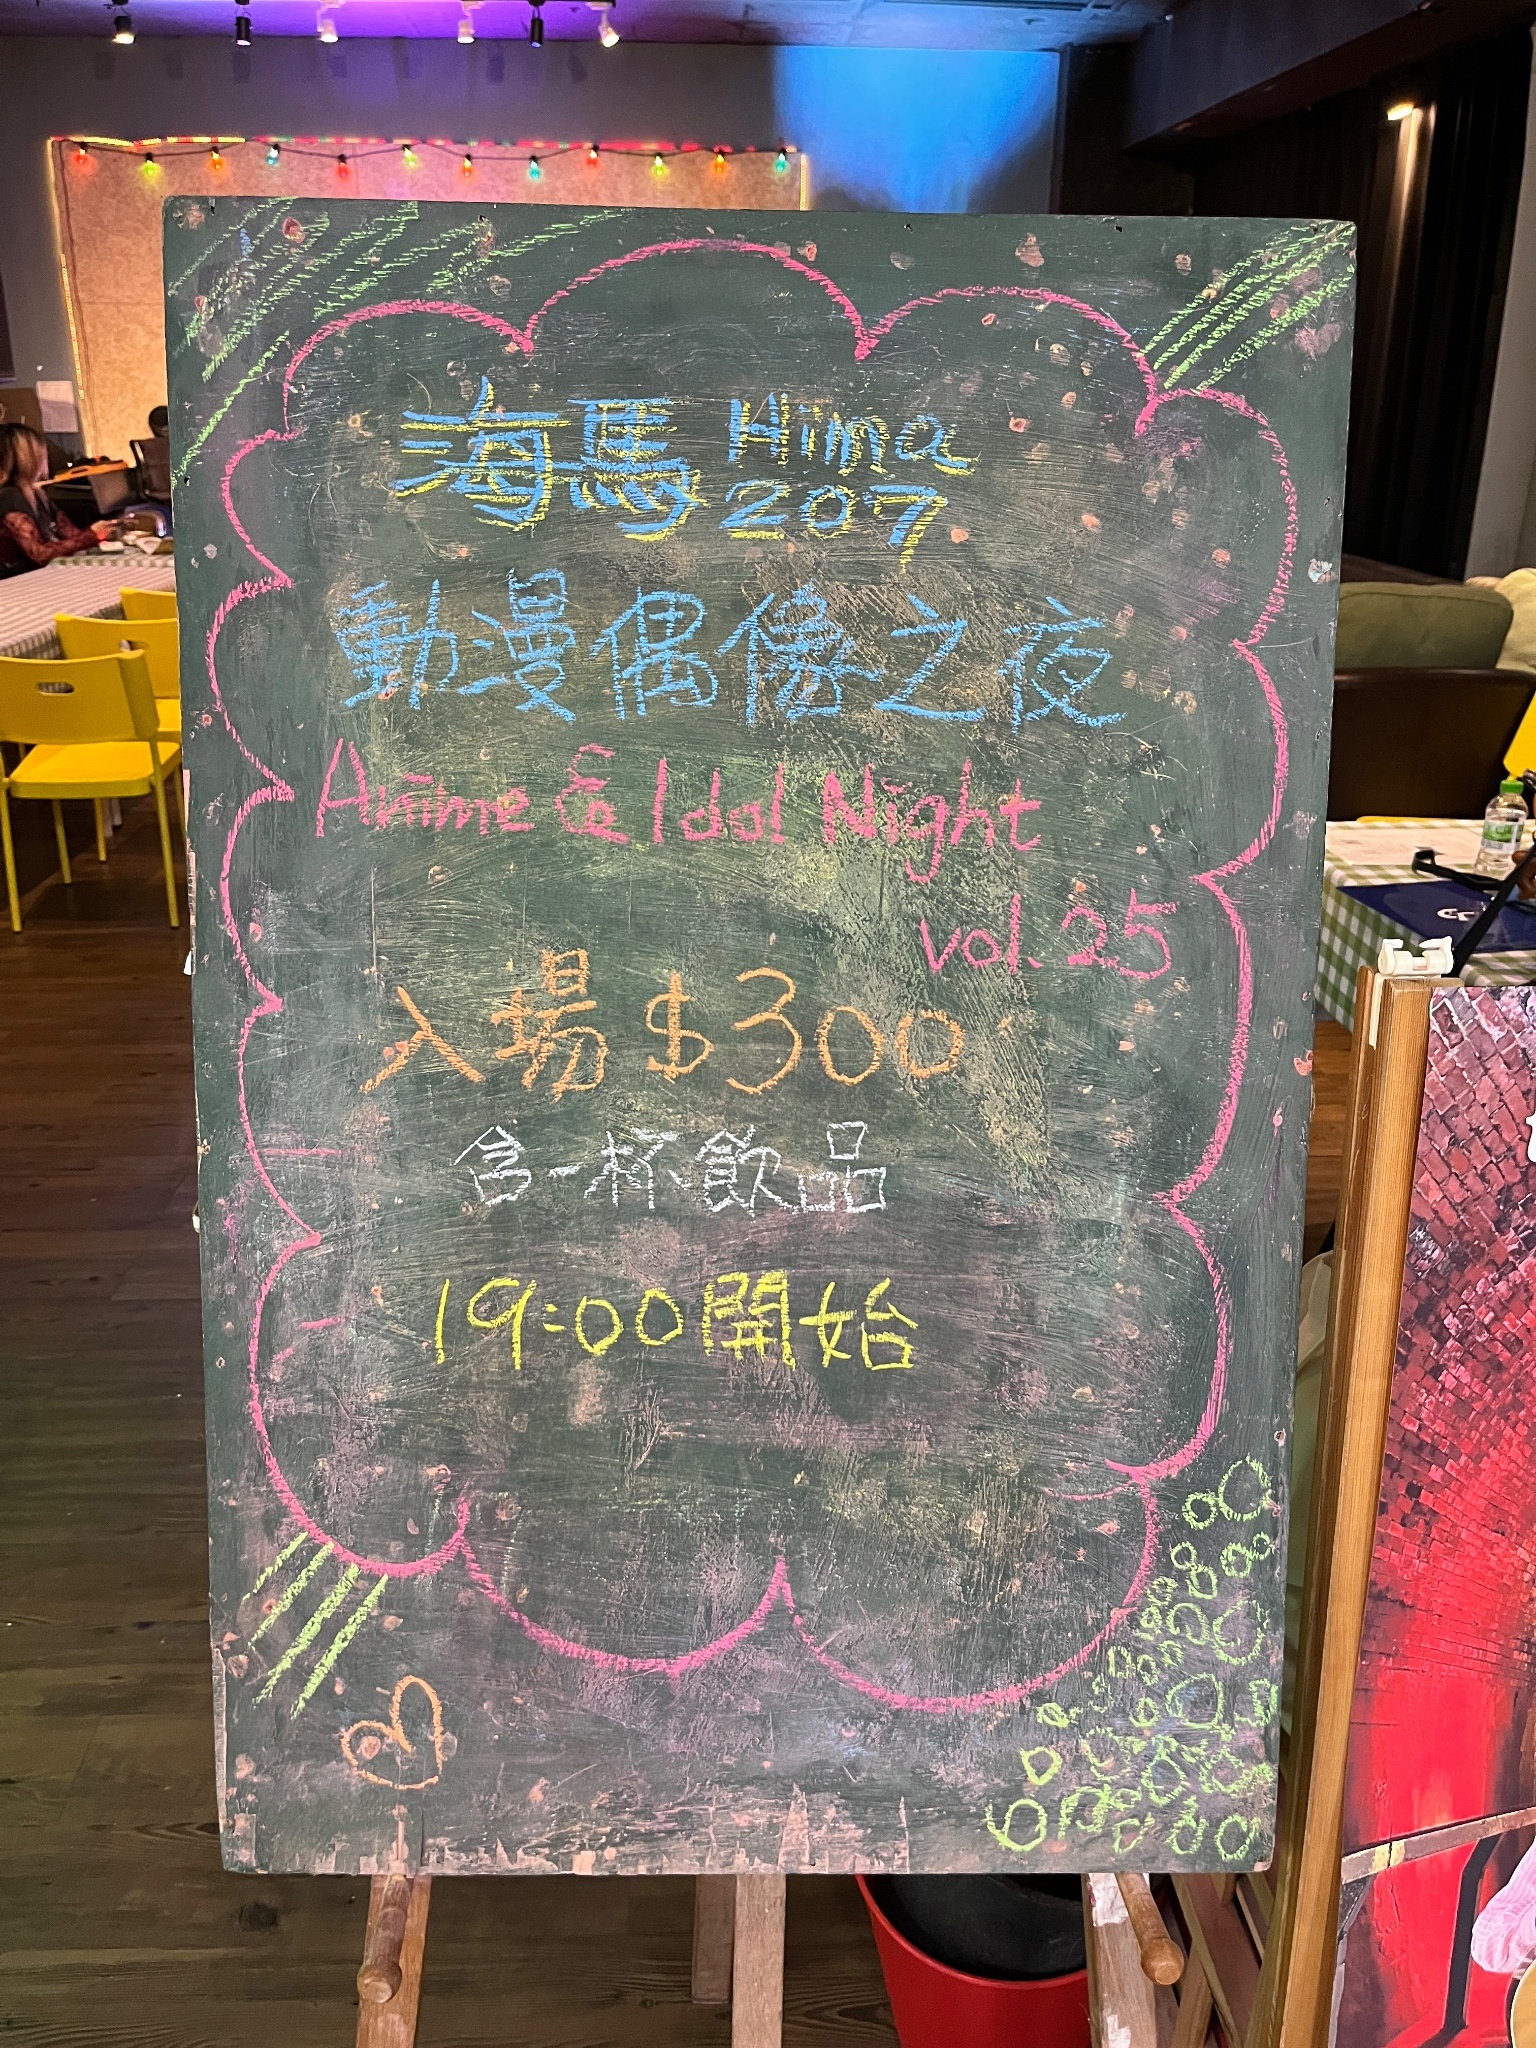 海馬 Hima
207
動漫偶像之夜
Anime & Idol Night
vol. 25
入場 $300
含一杯飲品
19:00 開始